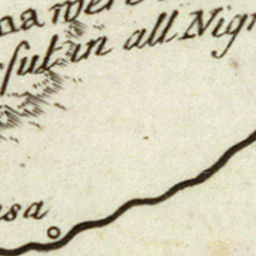 na were
sul in all Nigr
usa